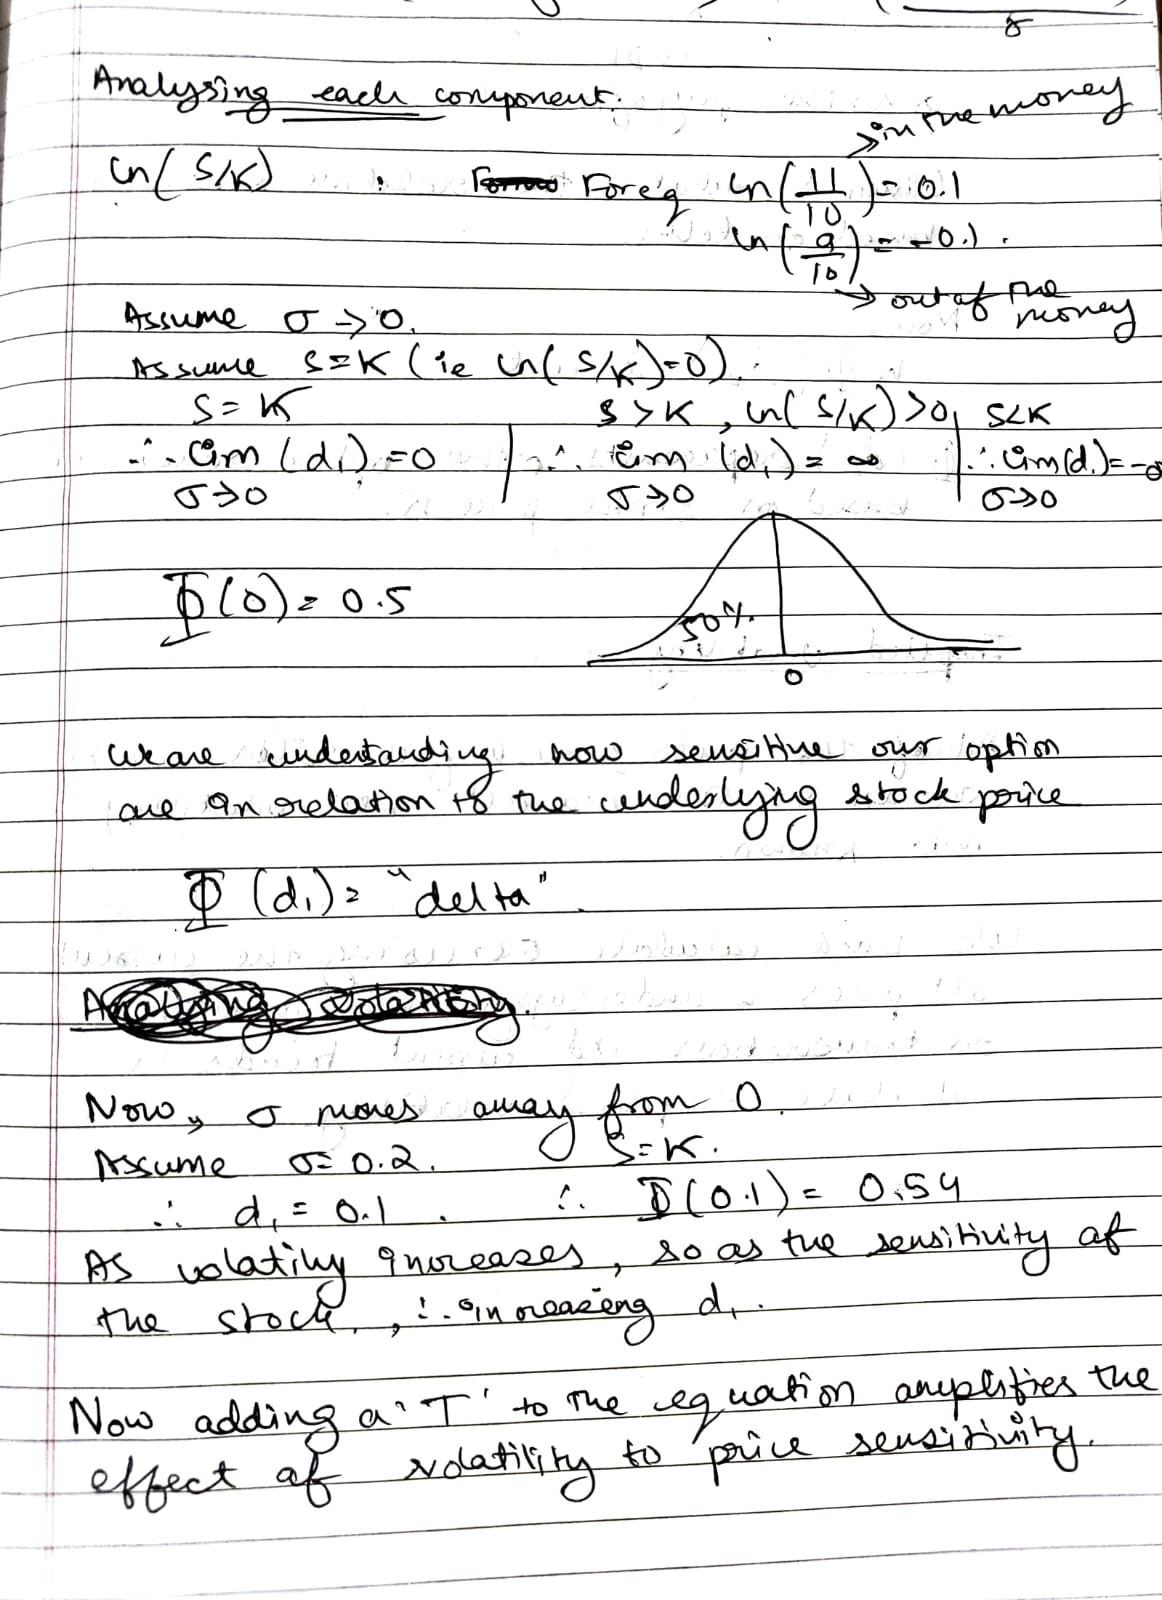 σ
Analysing each component.
ln(S/K) : For eg ln(11/10) = 0.1 → in the money
ln(9/10) = -0.1.
→ out of the money
Assume σ → 0.
Assume S=K (ie ln(S/K)=0).
S=K S>K, ln(S/K)>0, S<K
∴ lim (d₁) = 0 | ∴ lim (d₁) = ∞ | ∴ lim(d₁)=-∞
σ→0 σ→0 σ→0
Φ(0) = 0.5
50%
0
We are understanding how sensitive our option
are in relation to the underlying stock price
Φ (d₁) = "delta".
Analysing volatility.
Now, σ moves away from 0.
Assume σ = 0.2. S=K.
∴ d₁ = 0.1. ∴ Φ(0.1) = 0.54
As volatiliy increases, so as the sensitivity of
the stock, ∴ increaseing d₁.
Now adding a 'T' to the equation amplifies the
effect of volatility to price sensitivity.